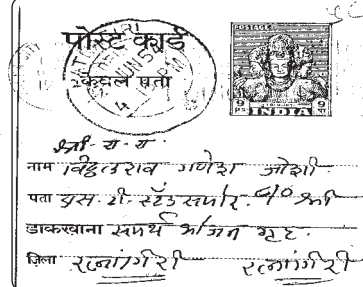 पोस्ट कार्ड
केवल पता
POSTAGE
9 Ps 9 Ps
INDIA
श्री. रा. रा.
नाम विठ्ठलराव गणेश जोशी.
पता एस. टी. स्टँड समोर. c/o श्री
डाकखाना समर्थ भोजन गृह.
ज़िला रत्नागिरी रत्नागिरी